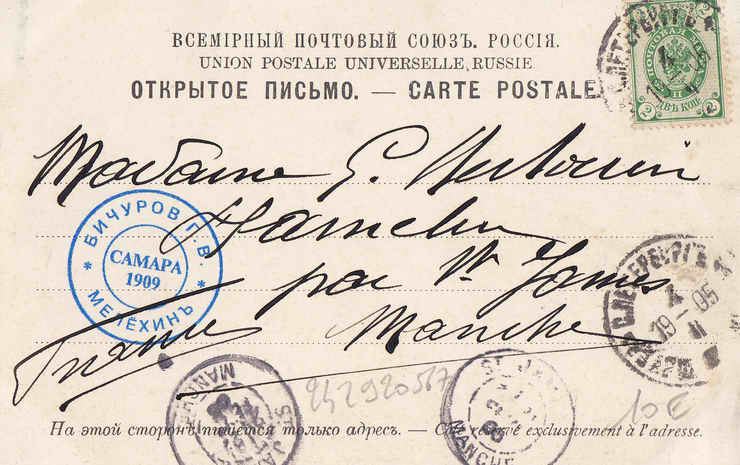 ВСЕМІРНЫЙ ПОЧТОВЫЙ СОЮЗЪ. РОССІЯ.
UNION POSTALE UNIVERSELLE, RUSSIE
ОТКРЫТОЕ ПИСЬМО. — CARTE POSTALE.
ПОЧТОВАЯ
2 ДВѢ КОП. 2
Madame G.
Hamelin
par St James
Manche
France
БИЧУРОВ Г. В.
САМАРА
1909
* МЕЛЁХИНЪ *
С.ПЕТЕРБУРГЪ
4
19-05
II
MANCHE
ST JAMES
MANCHE
242920567
10E
На этой сторонѣ пишется только адресъ. — Côté réservé exclusivement à l'adresse.